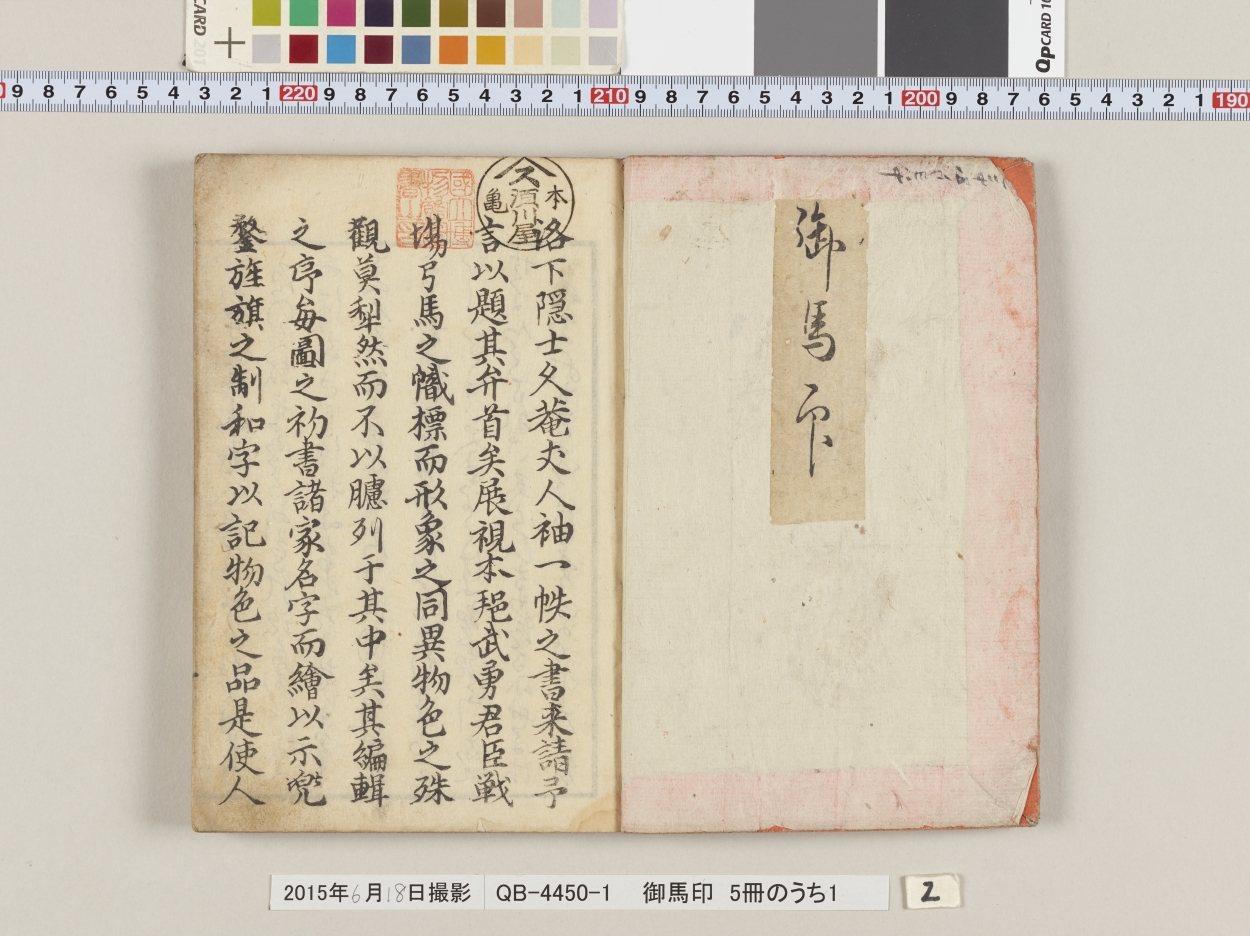 CARD 201
QpCARD 10
9 8 7 6 5 4 3 2 1 220 9 8 7 6 5 4 3 2 1 210 9 8 7 6 5 4 3 2 1 200 9 8 7 6 5 4 3 2 1 190
御馬印
本
ス
須川屋
亀
洛下隠士久菴丈人袖一帙之書来請予
言以題其弁首矣展視本邦武勇君臣戦
場弓馬之幟標而形象之同異物色之殊
觀莫犁然而不以臚列于其中矣其編輯
之序毎圖之初書諸家名字而繪以示兜
鍪旌旗之制和字以記物色之品是使人
2015年6月18日撮影 QB-4450-1 御馬印 5冊のうち1
2